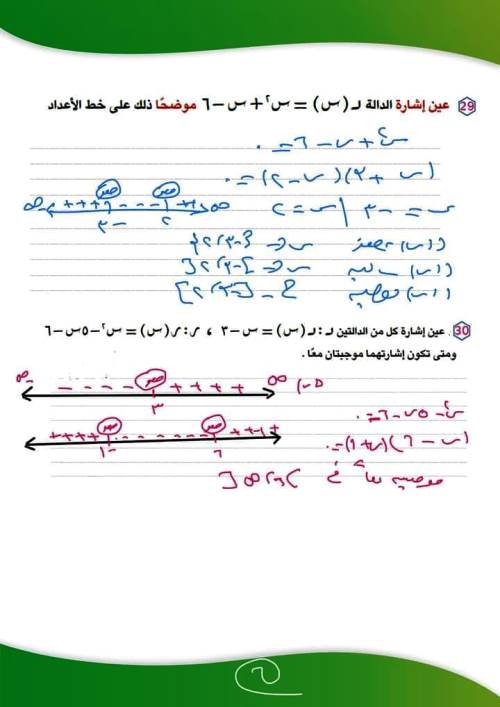 29 عين إشارة الدالة د (س) = س٢ + س − ٦ موضحًا ذلك على خط الأعداد
س٢ + س − ٦ = ٠
(س + ٣)(س − ٢) = ٠
س = −٣ | س = ٢
∞ + + صفر − − − صفر + + + −∞
٢ −٣
د(س) صفر س ∈ {−٣، ٢}
د(س) سالبه س ∈ ]−٣، ٢[
د(س) موجبه ح − [−٣، ٢]
30 عين إشارة كل من الدالتين د : د (س) = س − ٣ ، ر : ر (س) = س٢ − ٥س − ٦
ومتى تكون إشارتهما موجبتان معًا .
د(س) ∞ + + + + صفر − − − − −∞
٣
س٢ − ٥س − ٦ = ٠
+ + + + صفر − − − − − − صفر + + + +
٦ −١
(س − ٦)(س + ١) = ٠
موجبه معاً في ]٦، ∞[
٢